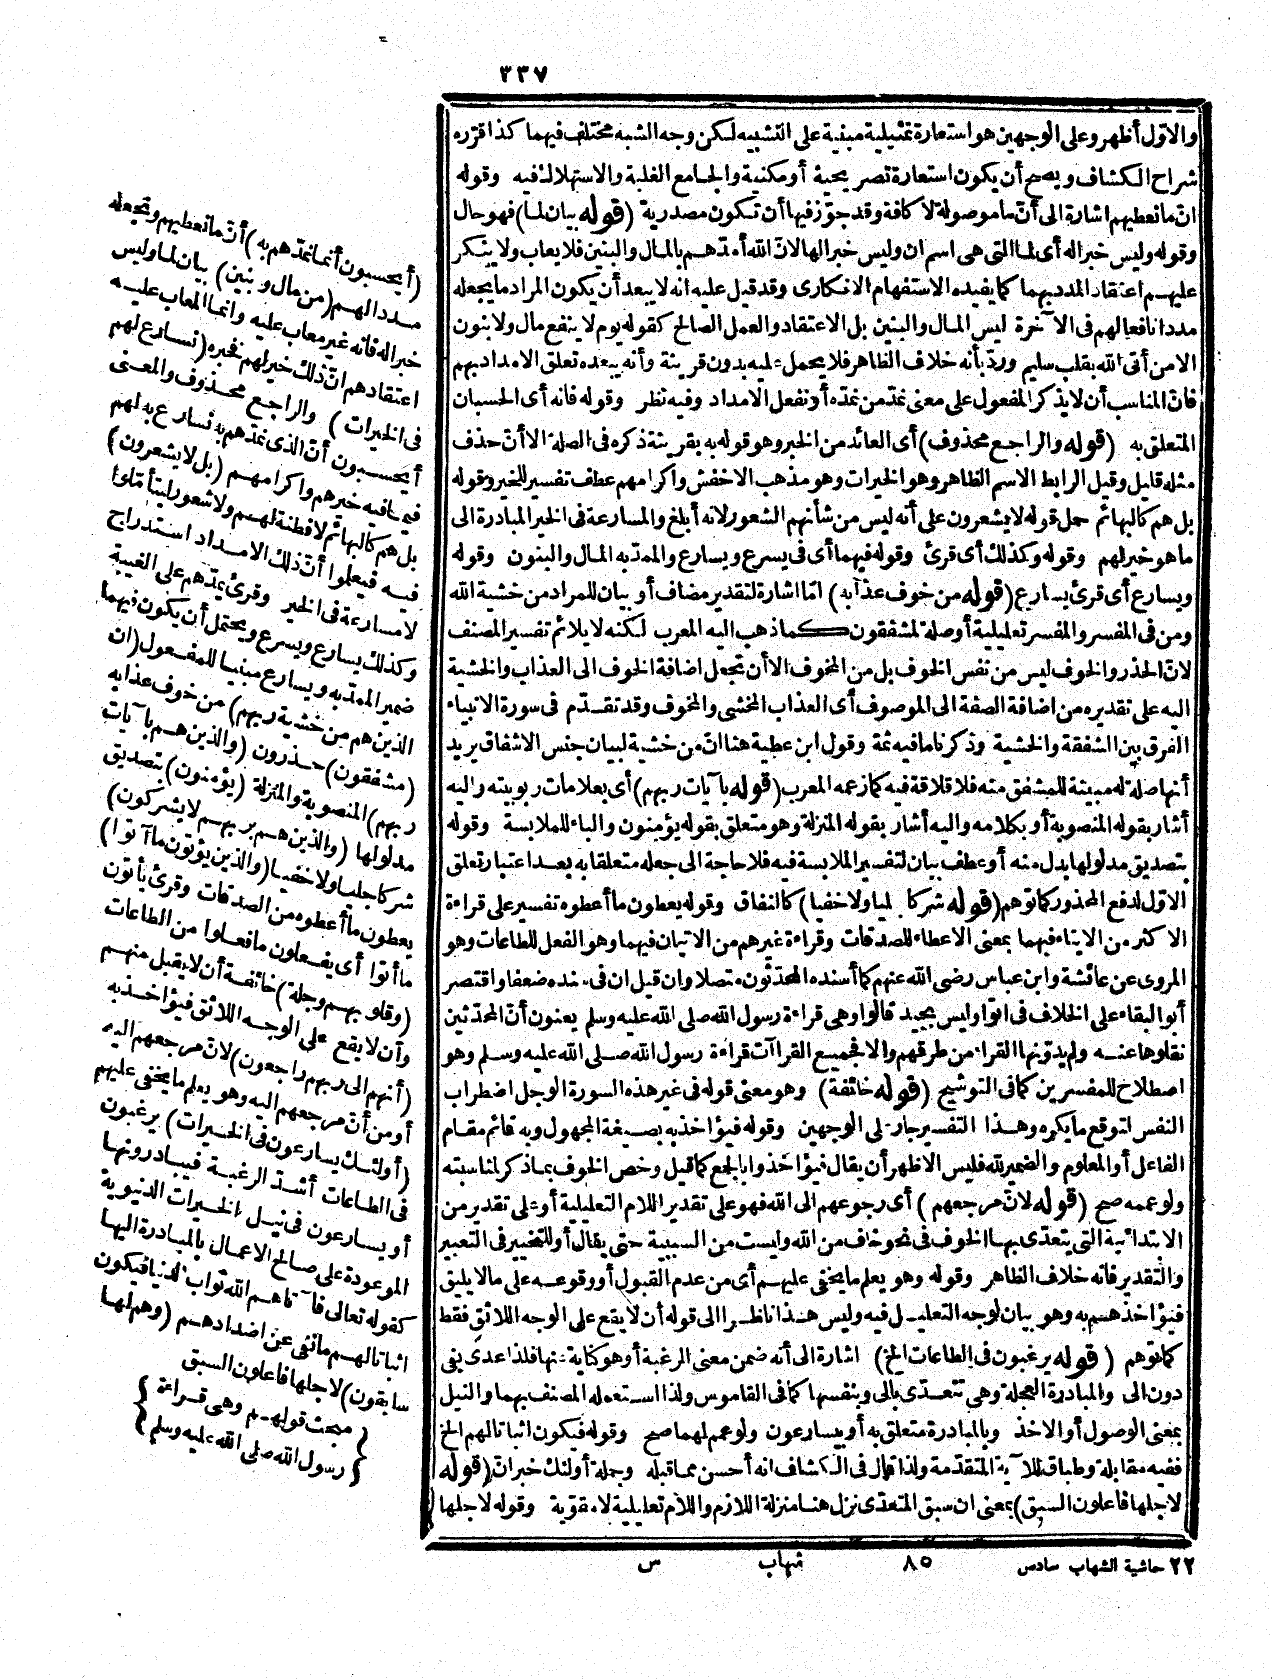 ٣٣٧
والاوّل أظهر وعلى الوجهين هو استعارة تمثيلية مبنية على التشبيه لكن وجه الشبه مختلف فيهما كذا قرّره
شراح الكشاف ويصح أن يكون استعارة تصريحية أو مكنية والجامع الغلبة والاستهلاك فيه وقوله
انّ ما نعطيهم اشارة الى أنّ ما موصولة لا كافة وقد جوّز فيها أن تكون مصدرية (قوله بيان لما) فهو حال
وقوله وليس خبرا له أى لما التى هى اسم ان وليس خبرا لها لانّ الله أمدّهم بالمال والبنين فلا يعاب ولا ينكر
عليهم اعتقاد المدد بهما كما يفيده الاستفهام الانكارى وقد قيل عليه انه لا يبعد أن يكون المراد ما يجعله
مددا نافعا لهم فى الآخرة ليس المال والبنين بل الاعتقاد والعمل الصالح كقوله يوم لا ينفع مال ولا بنون
الا من أتى الله بقلب سليم وردّ بأنه خلاف الظاهر فلا يحمل عليه بدون قرينة وأنه يبعده تعلق الامداد بهم
فانّ المناسب أن لا يذكر المفعول على معنى نمدّ من نمدّه أو نفعل الامداد وفيه نظر وقوله فانه أى الحسبان
المتعلق به (قوله والراجع محذوف) أى العائد من الخبر وهو قوله به بقرينة ذكره فى الصلة الا أنّ حذف
مثله قليل وقيل الرابط الاسم الظاهر وهو الخيرات وهو مذهب الاخفش واكرامهم عطف تفسير للخير وقوله
بل هم كالبهائم حمل قوله لا يشعرون على أنه ليس من شأنهم الشعور لانه أبلغ والمسارعة فى الخير المبادرة الى
ما هو خير لهم وقوله وكذلك أى قرئ وقوله فيهما أى فى يسرع ويسارع والممدّ به المال والبنون وقوله
ويسارع أى قرئ يسارع (قوله من خوف عذابه) امّا اشارة لتقدير مضاف أو بيان للمراد من خشية الله
ومن فى المفسر والمفسر تعليلية أو صلة لمشفقون كما ذهب اليه المعرب لكنه لا يلائم تفسير المصنف
لانّ الحذر والخوف ليس من نفس الخوف بل من المخوف الا أن تجعل اضافة الخوف الى العذاب والخشية
اليه على تقديره من اضافة الصفة الى الموصوف أى العذاب المخشى والمخوف وقد تقدّم فى سورة الانبياء
الفرق بين الشفقة والخشية وذكرنا ما فيه ثمة وقول ابن عطية هنا انّ من خشية لبيان جنس الاشفاق يريد
أنها صلة له مبينة للمشفق منه فلا قلاقة فيه كما زعمه المعرب (قوله بآيات ربهم) أى بعلامات ربوبيته واليه
أشار بقوله المنصوبة أو بكلامه واليه أشار بقوله المنزلة وهو متعلق بقوله يؤمنون والباء للملابسة وقوله
بتصديق مدلولها بدل منه أو عطف بيان لتفسير الملابسة فيه فلا حاجة الى جعله متعلقا به بعد اعتبار تعلق
الاوّل لدفع المحذور كما توهم (قوله شركا جليا ولا خفيا) كالنفاق وقوله يعطون ما أعطوه تفسير على قراءة
الاكثر من الايتاء فيهما بمعنى الاعطاء للصدقات وقراءة غيرهم من الاتيان فيهما وهو الفعل للطاعات وهو
المروى عن عائشة وابن عباس رضى الله عنهم كما أسنده المحدّثون متصلا وان قيل ان فى سنده ضعفا واقتصر
أبو البقاء على الخلاف فى اتوا وليس بجيد قالوا وهى قراءة رسول الله صلى الله عليه وسلم يعنون أنّ المحدّثين
نقلوها عنه ولم يدوّنها القراء من طرقهم والا فجميع القراآت قراءة رسول الله صلى الله عليه وسلم وهو
اصطلاح للمفسرين كما فى التوشيح (قوله خائفة) وهو معنى قوله فى غير هذه السورة الوجل اضطراب
النفس لتوقع ما يكره وهذا التفسير جار على الوجهين وقوله فيؤاخذ به بصيغة المجهول وبه قائم مقام
الفاعل أو المعلوم والضمير لله فليس الاظهر أن يقال فيؤاخذوا بالجمع كما قيل وخص الخوف بما ذكر لمناسبته
ولو عممه صح (قوله لانّ مرجعهم) أى رجوعهم الى الله فهو على تقدير اللام التعليلية أو على تقدير من
الابتدائية التى يتعدّى بها الخوف فى نحو خاف من الله وليست من السببية حتى يقال أو للتخيير فى التعبير
والتقدير فانه خلاف الظاهر وقوله وهو يعلم ما يخفى عليهم أى من عدم القبول أو وقوعه على ما لا يليق
فيؤاخذهم به وهو بيان لوجه التعليل فيه وليس هذا ناظرا الى قوله أن لا يقع على الوجه اللائق فقط
كما توهم (قوله يرغبون فى الطاعات الخ) اشارة الى أنه ضمن معنى الرغبة أو هو كناية عنها فلذا عدى بفى
دون الى والمبادرة العجلة وهى تتعدّى بالى وبنفسها كما فى القاموس ولذا استعمله المصنف بهما والنيل
بمعنى الوصول أو الاخذ وبالمبادرة متعلق به أو بيسارعون ولو عمم لهما صح وقوله فيكون اثباتا لهم الخ
ففيه مقابلة وطباق للآية المتقدّمة ولذا قال فى الكشاف انه أحسن مما قبله وجملة أولئك خبر انّ (قوله
لاجلها فاعلون السبق) بمعنى ان سبق المتعدّى نزل هنا منزلة اللازم واللام تعليلية لا مقوّية وقوله لاجلها
(أيحسبون أنما نمدّهم به) أنّ ما نعطيهم ونجعله
مددا لهم (من مال وبنين) بيان لما وليس
خبرا له فانه غير معاب عليه وانما المعاب عليه
اعتقادهم انّ ذلك خير لهم فخبره (نسارع لهم
فى الخيرات) والراجع محذوف والمعنى
أيحسبون أنّ الذى نمدّهم به نسارع به لهم
فيما فيه خيرهم واكرامهم (بل لا يشعرون)
بل هم كالبهائم لا فطنة لهم ولا شعور ليتأمّلوا
فيه فيعلوا أنّ ذلك الامداد استدراج
لا مسارعة فى الخير وقرئ يمدّهم على الغيبة
وكذلك يسارع ويسرع ويحتمل أن يكون فيهما
ضمير الممدّ به ويسارع مبنيا للمفعول (ان
الذين هم من خشية ربهم) من خوف عذابه
(مشفقون) حذرون (والذين هم بآيات
ربهم) المنصوبة والمنزلة (يؤمنون) بتصديق
مدلولها (والذين هم بربهم لا يشركون)
شركا جليا ولا خفيا (والذين يؤتون ما آتوا)
يعطون ما أعطوه من الصدقات وقرئ يأتون
ما أتوا أى يفعلون ما فعلوا من الطاعات
(وقلوبهم وجلة) خائفة أن لا يقبل منهم
وأن لا يقع على الوجه اللائق فيؤاخذ به
(أنهم الى ربهم راجعون) لانّ مرجعهم اليه
أو من أنّ مرجعهم اليه وهو يعلم ما يخفى عليهم
(أولئك يسارعون فى الخيرات) يرغبون
فى الطاعات أشدّ الرغبة فيبادرونها
أو يسارعون فى نيل الخيرات الدنيوية
الموعودة على صالح الاعمال بالمبادرة اليها
كقوله تعالى فآتاهم الله ثواب الدنيا فيكون
اثباتا لهم ما نفى عن اضدادهم (وهم لها
سابقون) لاجلها فاعلون السبق
مبحث قولهم وهى قراءة
رسول الله صلى الله عليه وسلم
٢٢ حاشية الشهاب سادس ٨٥ شهاب س